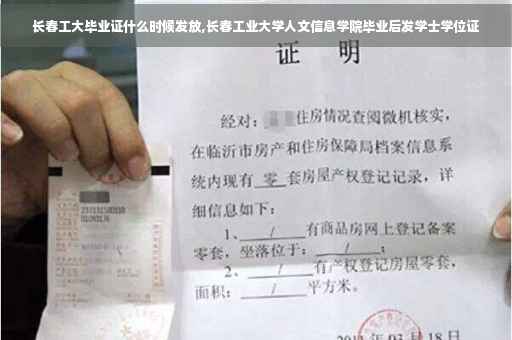 长春工大毕业证什么时候发放,长春工业大学人文信息学院毕业后发学士学位证
证 明
经对：住房情况查阅微机核实，
在临沂市房产和住房保障局档案信息系
统内现有 零 套房屋产权登记记录，详
细信息如下：
1、 / 有商品房网上登记备案
零套，坐落位于： / ；
2、 / 有产权登记房屋零套，
面积： / 平方米。
月 18 日